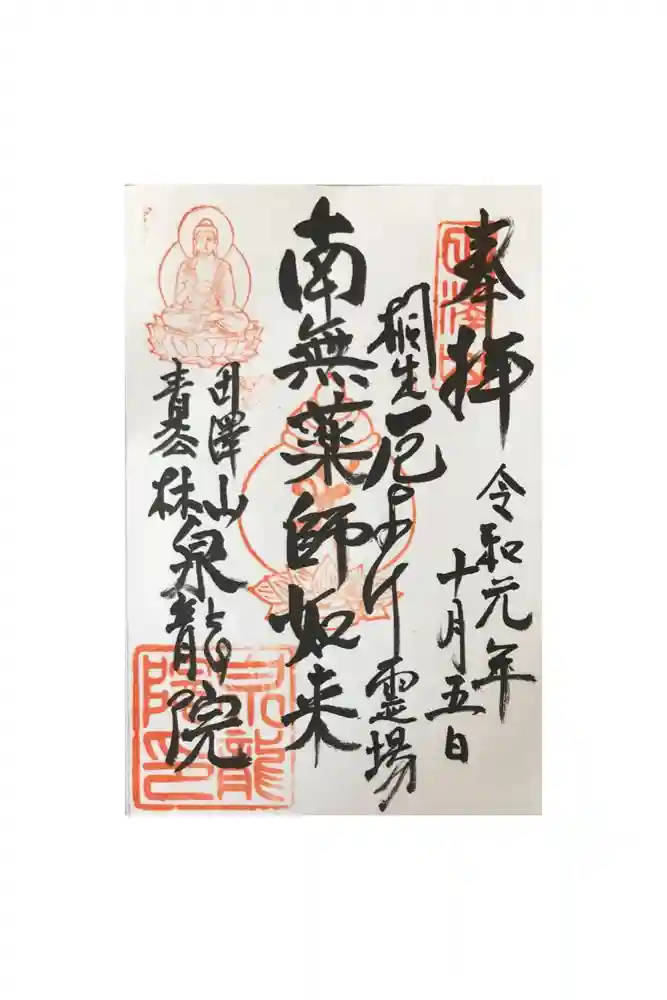 奉拝
令和元年
十月五日
桐生厄よけ霊場
南無薬師如来
田澤山
青枩林
泉龍院
泉龍院印